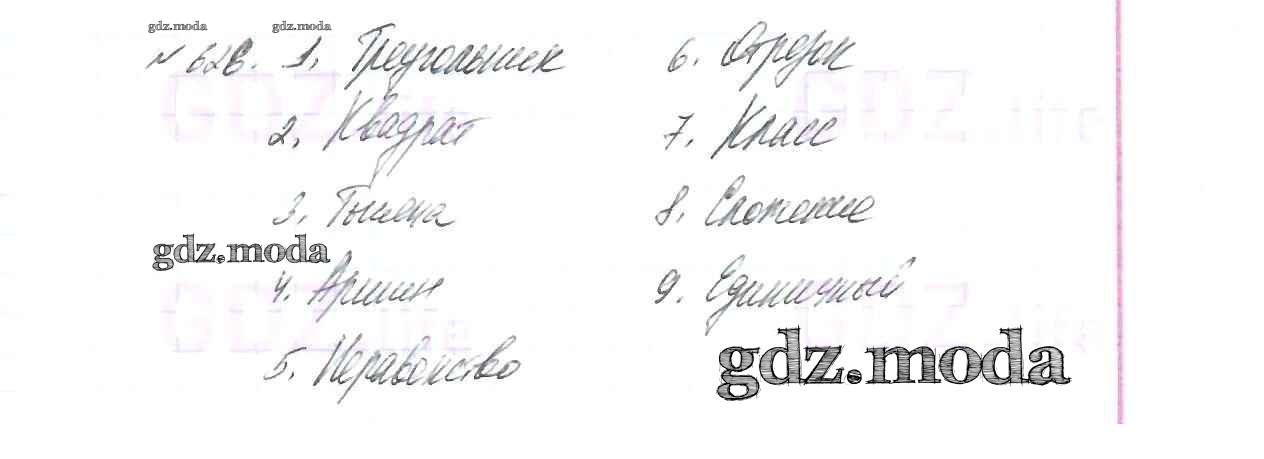 gdz.moda gdz.moda
№ 626. 1. Треугольник
2. Квадрат
3. Тысяча
gdz.moda
4. Аршин
5. Неравенство
6. Отрезок
7. Класс
8. Сложение
9. Единичный
gdz.moda
GDZ.life
GDZ.life
GDZ.life
GDZ.life